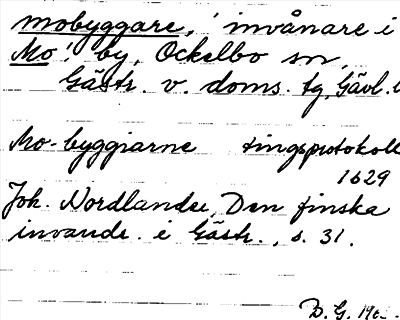 mobyggare, 'invånare i
Mo', by, Ockelbo sn,
Gästr. v. doms. tg, Gävl. l
Mo-byggiarne tingsprotokoll
1629
Joh. Nordlander, Den finska
invandr. i Gästr., s. 31.
D. G.